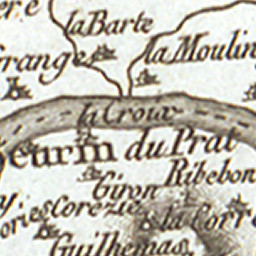 ere
la Barte
frange
la Moulin
la Croux
eurin du Prat
Giron
Ribebon
ories
Corezie
la Corre
Guilhemas